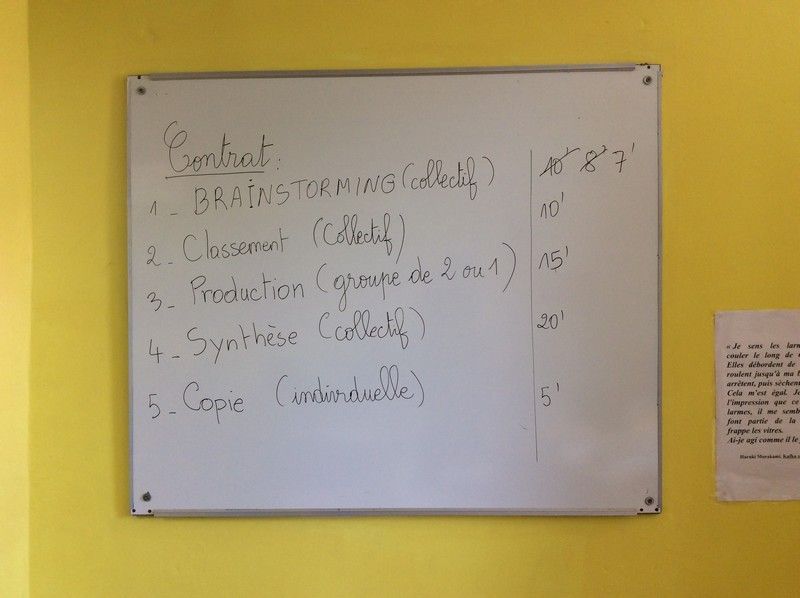 Contrat:
1_ BRAINSTORMING (collectif) 10' 8' 7'
2_ Classement (Collectif) 10'
3_ Production (groupe de 2 ou 1) 15'
4_ Synthèse (collectif) 20'
5_ Copie (individuelle) 5'
« Je sens les
couler le long de
Elles débordent de
roulent jusqu'à ma
arrêtent, puis sèchen
Cela m'est égal. Je
l'impression que ce
larmes, il me semb
font partie de la
frappe les vitres.
Ai-je agi comme il le
Haruki Murakami, Kafka